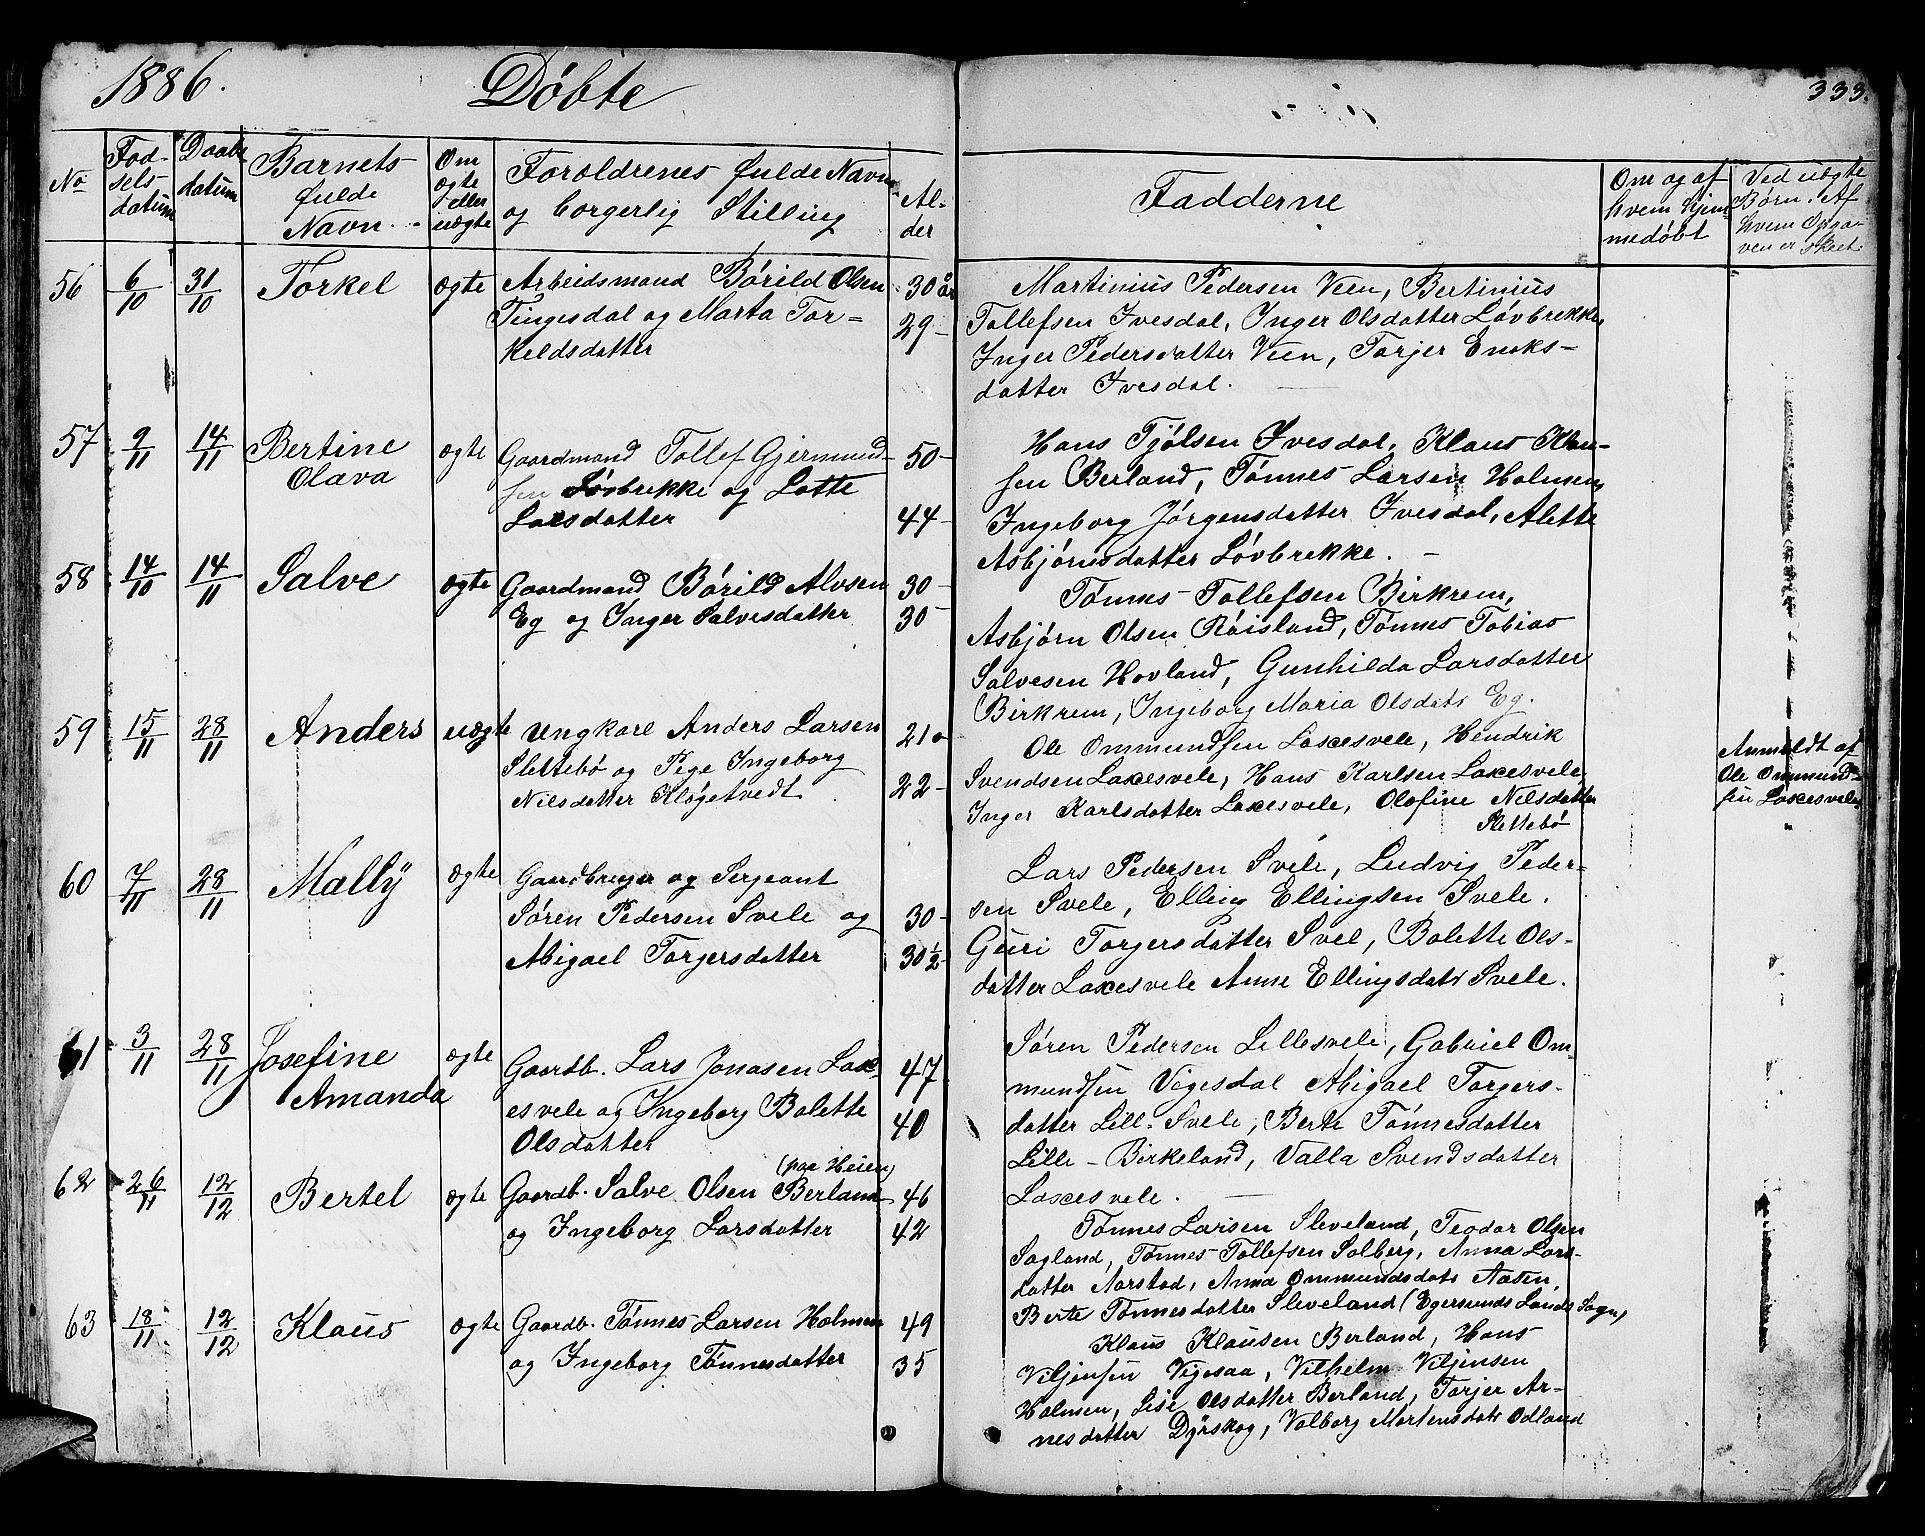 1886. Døbte
333.
No
Fød-
sels
datum
Daabs
datum
Barnets
fulde
Navn
Om
ægte
eller
uægte
Forældrenes fulde Navn
og borgerlig Stilling
Al-
der
Fadderne
Om og af
hvem hjem-
medøbt
Ved uægte
Børn. Af
hvem Opga-
ven er skeet
56 6/10 31/10 Torkel ægte Arbeidsmand Børild Olsen 30 år
Tingesdal og Marta Tor= 29-
keldsdatter
Martinius Pedersen Veen, Bertinius
Tollefsen Ivesdal, Inger Olsdatter Løvbrekke,
Inger Pedersdatter Veen, Torjer Enoks-
datter Ivesdal.
57 9/11 14/11 Bertine ægte Gaardmand Tollef Gjermund- 50-
Olava sen Løvbrekke og Lotte
Larsdatter 44-
Hans Tjølsen Ivesdal, Klaus Klau-
sen Berland, Tønnes Larsen Holmen,
Ingeborg Jørgensdatter Ivesdal, Alette
Asbjørnsdatter Løvbrekke. -
58 14/10 14/11 Salve ægte Gaardmand Børild Alvsen 30-
Eg og Inger Salvesdatter 30-
Tønnes Tollefsen Birkrem,
Asbjørn Olsen Røisland, Tønnes Tobias
Salvesen Hovland, Gunhilda Larsdatter
Birkrem, Ingeborg Maria Olsdatr Eg.
59 15/11 28/11 Anders uægte Ungkarl Anders Larsen 21-
Slettebø og Pige Ingeborg
Nilsdatter Kløgetvedt 22-
Ole Ommundsen Laxesvele, Hendrik
Svendsen Laxesvele, Hans Karlsen Laxesvele,
Inger Karlsdatter Laxesvele, Olofine Nilsdatter
Slettebø
Anmeldt af
Ole Ommund-
sen Laxesvele
60 7/11 28/11 Mally ægte Gaardbruger og Sergeant
Søren Pedersen Svele og 30-
Abigael Torgersdatter 30½-
Lars Pedersen Svele, Ludvig Peder-
sen Svele, Elling Ellingsen Svele.
Guri Torgersdatter Svel, Bolette Ols-
datter Laxesvele Anne Ellingsdatr Svele.
61 3/11 28/11 Josefine ægte Gaardb. Lars Jonasen Lax- 47
Amanda esvele og Ingeborg Bolette 40
Olsdatter
Søren Pedersen Lillesvele, Gabriel Om-
mundsen Vigesdal Abigael Torgers-
datter Lill-Svele, Berte Tønnesdatter
Lille-Birkeland, Valla Svendsdatter
Laxesvele.
62 26/11 12/12 Bertel ægte Gaardb. Salve Olsen Berland (paa Heien) 46
og Ingeborg Larsdatter 42
Tønnes Larsen Sleveland, Teodor Olsen
Sagland, Tønnes Tollefsen Solberg, Anna Lars-
datter Aarstad, Anna Ommundsdatr Aasen,
Berte Tønnesdatter Sleveland (Egersunds Lands Sogn)
63 18/11 12/12 Klaus ægte Gaardb. Tønnes Larsen Holmen 49
og Ingeborg Tønnesdatter 35
Klaus Klausen Berland, Hans
Viljensen Vigesaa, Vilhelm Viljensen
Holmen, Lise Olsdatter Berland, Torjer Ar-
nesdatter Dyrskog, Valborg Mortensdatr Odland